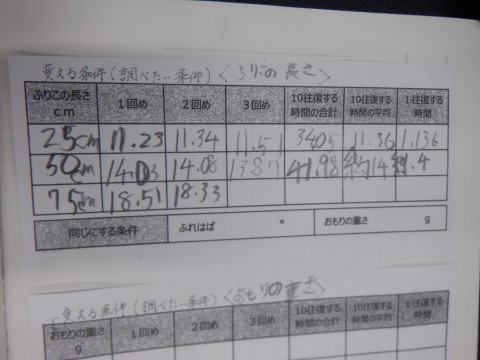 変える条件(調べたい条件)〈ふりこの長さ〉
ふりこの長さ cm 1回め 2回め 3回め 10往復する時間の合計 10往復する時間の平均 1往復する時間
25cm 11.23 11.34 11.51 3405 11.36 1.136
50cm 14.03 14.08 13.87 41.98 約14 約1.4
75cm 18.51 18.33
同じにする条件 ふれはば ° おもりの重さ g
変える条件(調べたい条件)〈おもりの重さ〉
おもりの重さ g 1回め 2回め 3回め 10往復する時間の合計 10往復する時間の平均 1往復する時間